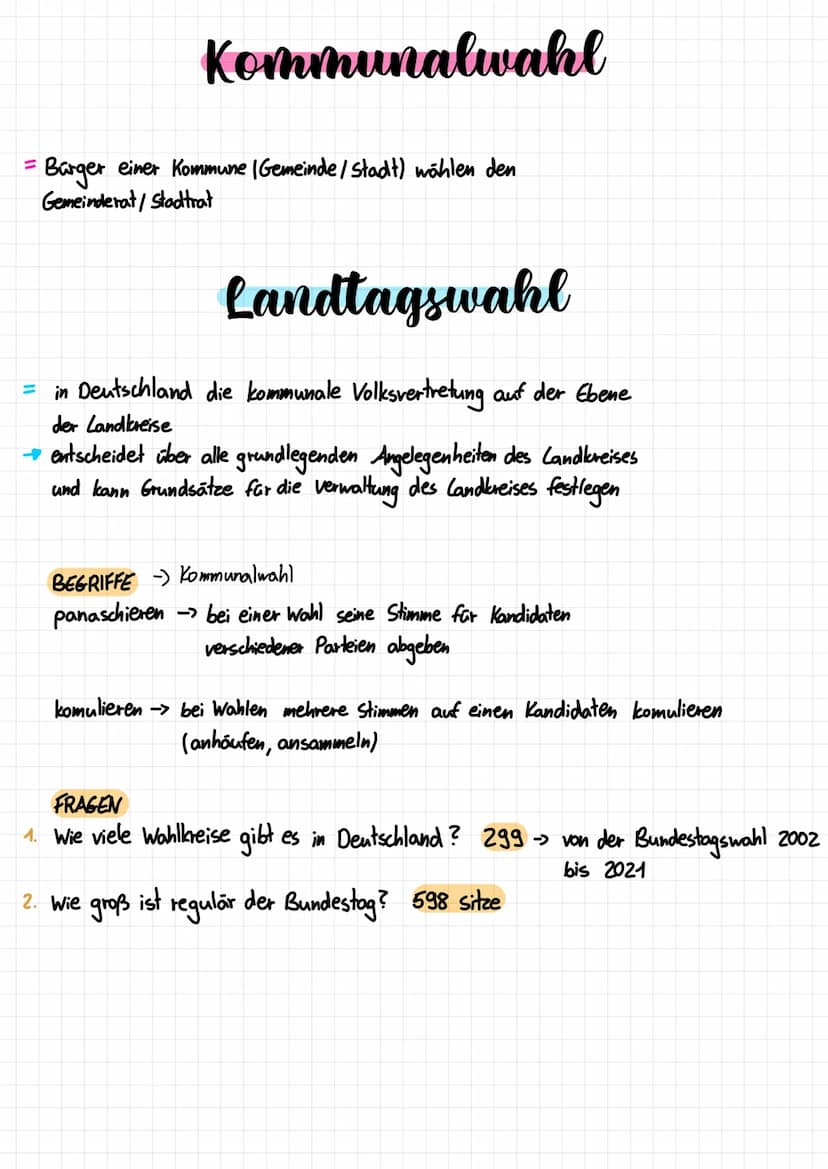 Kommunalwahl
= Bürger einer Kommune (Gemeinde / Stadt) wählen den
Gemeinderat / Stadtrat
Landtagswahl
= in Deutschland die kommunale Volksvertretung auf der Ebene
der Landkreise
→ entscheidet über alle grundlegenden Angelegenheiten des Landkreises
und kann Grundsätze für die Verwaltung des Landkreises festlegen
BEGRIFFE -> Kommunalwahl
panaschieren -> bei einer Wahl seine Stimme für Kandidaten
verschiedener Parteien abgeben
komulieren -> bei Wahlen mehrere Stimmen auf einen Kandidaten komulieren
(anhäufen, ansammeln)
FRAGEN
1. Wie viele Wahlkreise gibt es in Deutschland? 299 -> von der Bundestagswahl 2002
bis 2021
2. Wie groß ist regulär der Bundestag? 598 Sitze